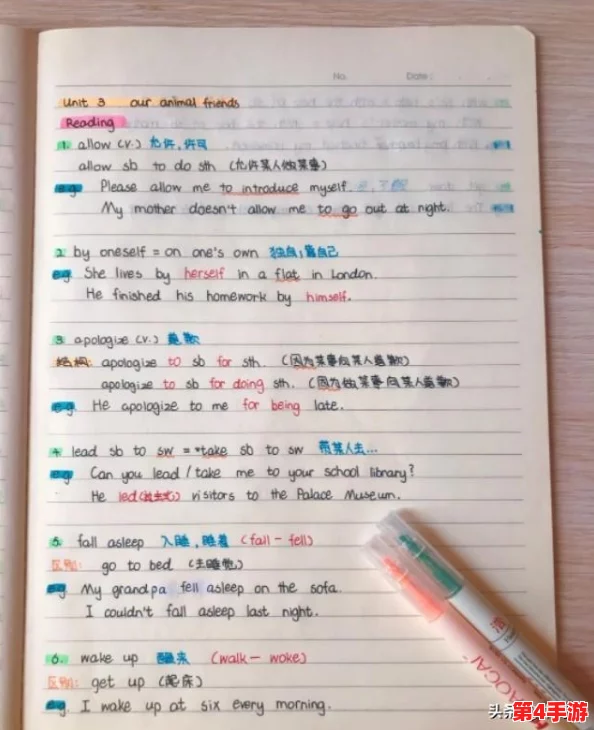 No.
Date:
Unit 3 our animal friends
Reading
1. allow (v.) 允许, 许可
allow sb to do sth (允许某人做某事)
e.g. Please allow me to introduce myself.
My mother doesn't allow me to go out at night.
2. by oneself = on one's own 独自; 靠自己
e.g. She lives by herself in a flat in London.
He finished his homework by himself.
3. apologize (v.) 道歉
结构: apologize to sb for sth. (因为某事向某人道歉)
apologize to sb for doing sth. (因为做某事向某人道歉)
e.g. He apologize to me for being late.
4. lead sb to sw = take sb to sw 带某人去...
e.g. Can you lead / take me to your school library?
He led (过去式) visitors to the Palace Museum.
5. fall asleep 入睡, 睡着 (fall - fell)
区别: go to bed (去睡觉)
e.g. My grandpa fell asleep on the sofa.
I couldn't fall asleep last night.
6. wake up 醒来 (walk - woke)
区别: get up (起床)
e.g. I wake up at six every morning.
头条
第4手游